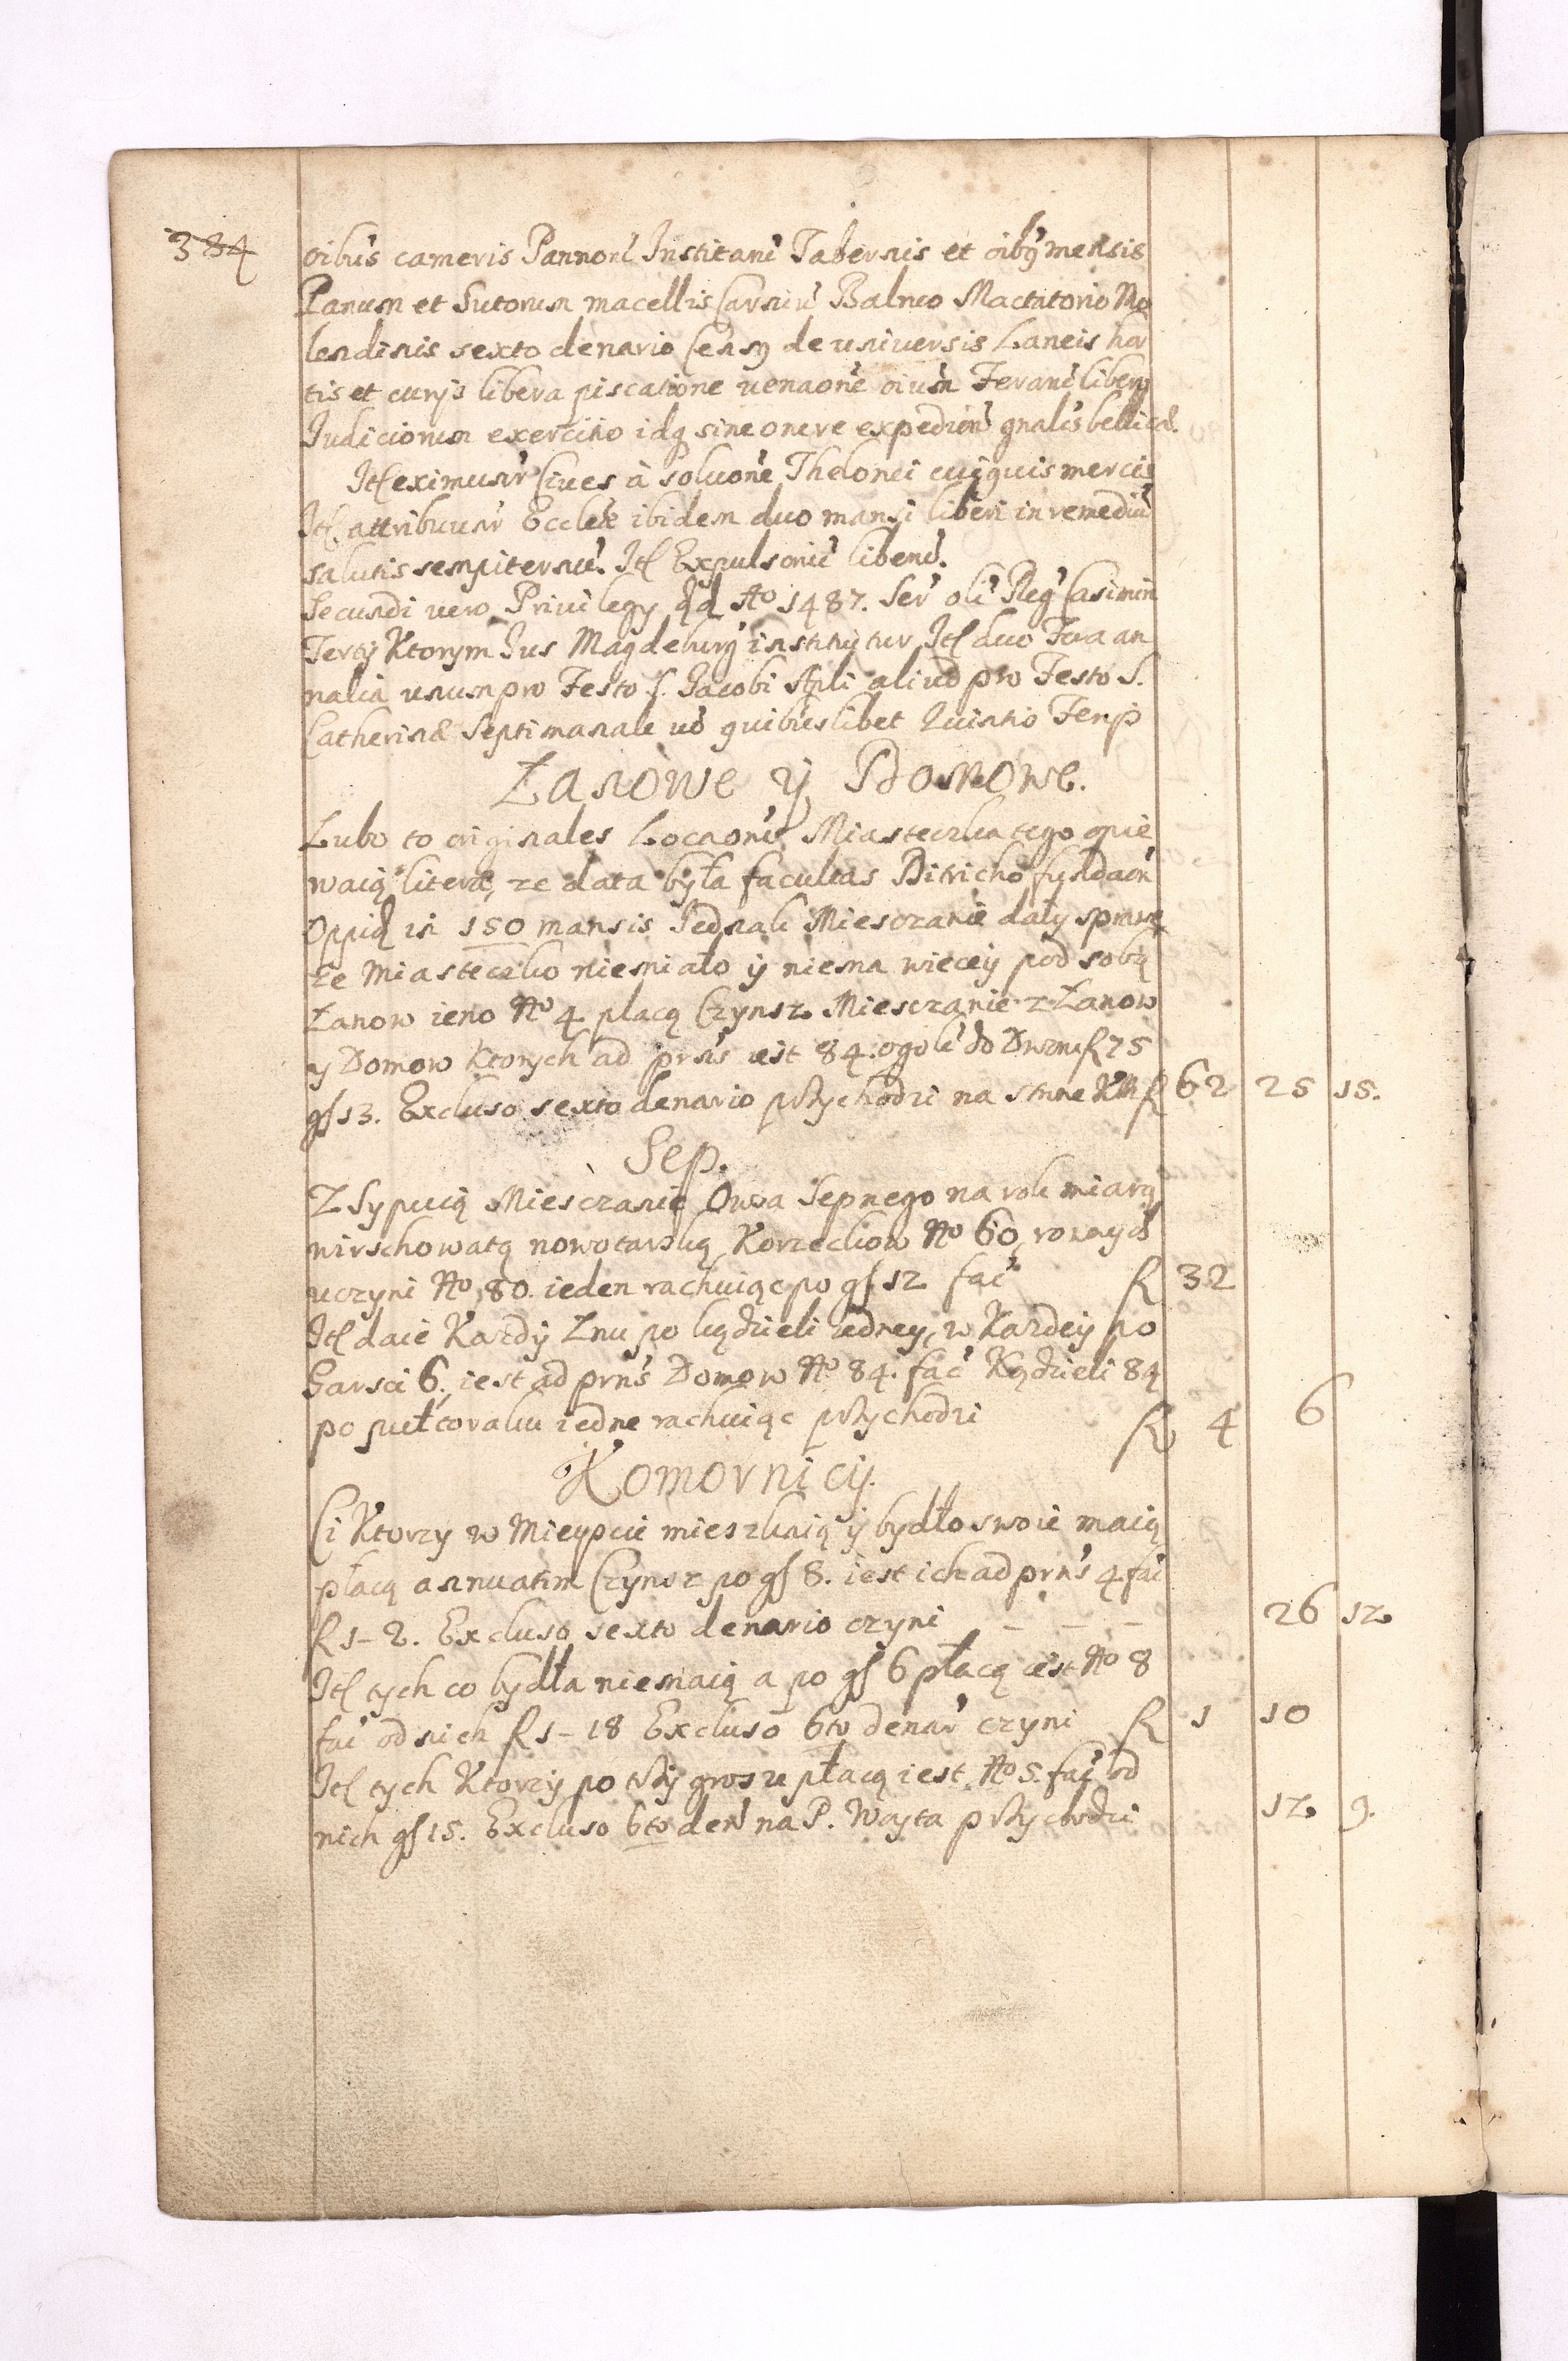 384
oibus cameris Pannorũ Institarũ Tabernis et oibꝰ mensis
Panum et Sutorum macellis Carniũ Balneo Mactatorio Mo
lendinis sexto denario Censꝰ de universis Laneis hor
tis et curijs libera piscatione venaone oium Ferarũ libero
Judiciorum exercitio idq sine onere expedicion gnalis bellicæ.
Itl eximuntr Cives à soluone Thelonei cuiquis mercis
Itl attribuuntr Eccleæ ibidem duo mansi liberi in remediũ
salutis sempiternũ. Itl Expulsoriũ liberũ.
Secundi vero Privilegy dd Ao 1487. Ser oli Reg Casimiri
Tertij Ktorym Jus Magdeburg instituitur Itl duo Fora an
nalia unum pro Festo S. Jacobi Apli aliud pro Festo S.
Catherinæ Septimanale vo quibuslibet Quintis Ferijs
Łanowe ÿ Domowe.
Lubo to originales Locaonis Miasteczka tego opie
waią literæ, ze data była facultas Ditricho fundaõn
Oppid in 150 mansis Jednak Miesczanie dały sprawę
ze Miasteczko niemiało ÿ niema wiecey pod sobą
Łanow ieno No 4 placą Czynsz Miesczanie z Łanow
y Domow Ktorych ad prns iest 84. ogolẽ do Dworu R 75
gſ 13. Excluso sexto denario przychodzi na strone KM R 62 25 15.
Sep.
Z Sypuią Miesczanie Owsa Sepnego na rok miarą
wirschowatą nowotarską Korzeckow No 60
uczyni No 80. ieden rachuiąc po gſ 12 faĉ R 32
Itl daie Kazdy Lnu po kądzieli iedney, w Kazdeÿ po
Garsci 6. iest ad prns Domow No 84. faĉ Kądzieli 84
po puełtoraku iedne rachuiąc przychodzi R 4 6
Komornicÿ.
Ci Ktorzy w Mieyscu mieszkaią ÿ bydło swoie maią
płacą annuatim Czynsz po gſ 8. iest ich ad prns 4 faĉ
R 1-2. Excluso sexto denario czyni - - - 26 12.
Itl tych co bydła niemaią a po gſ 6 płacą iest No 8
faĉ od nich R 1-18 Excluso 6to denar czyni R 1 10
Itl tych Ktorzy po trzy grosze płacą iest No 5. faĉ od
nich gſ 15. Excluso 6to den na P. Woyta przychodzi 12. 9.